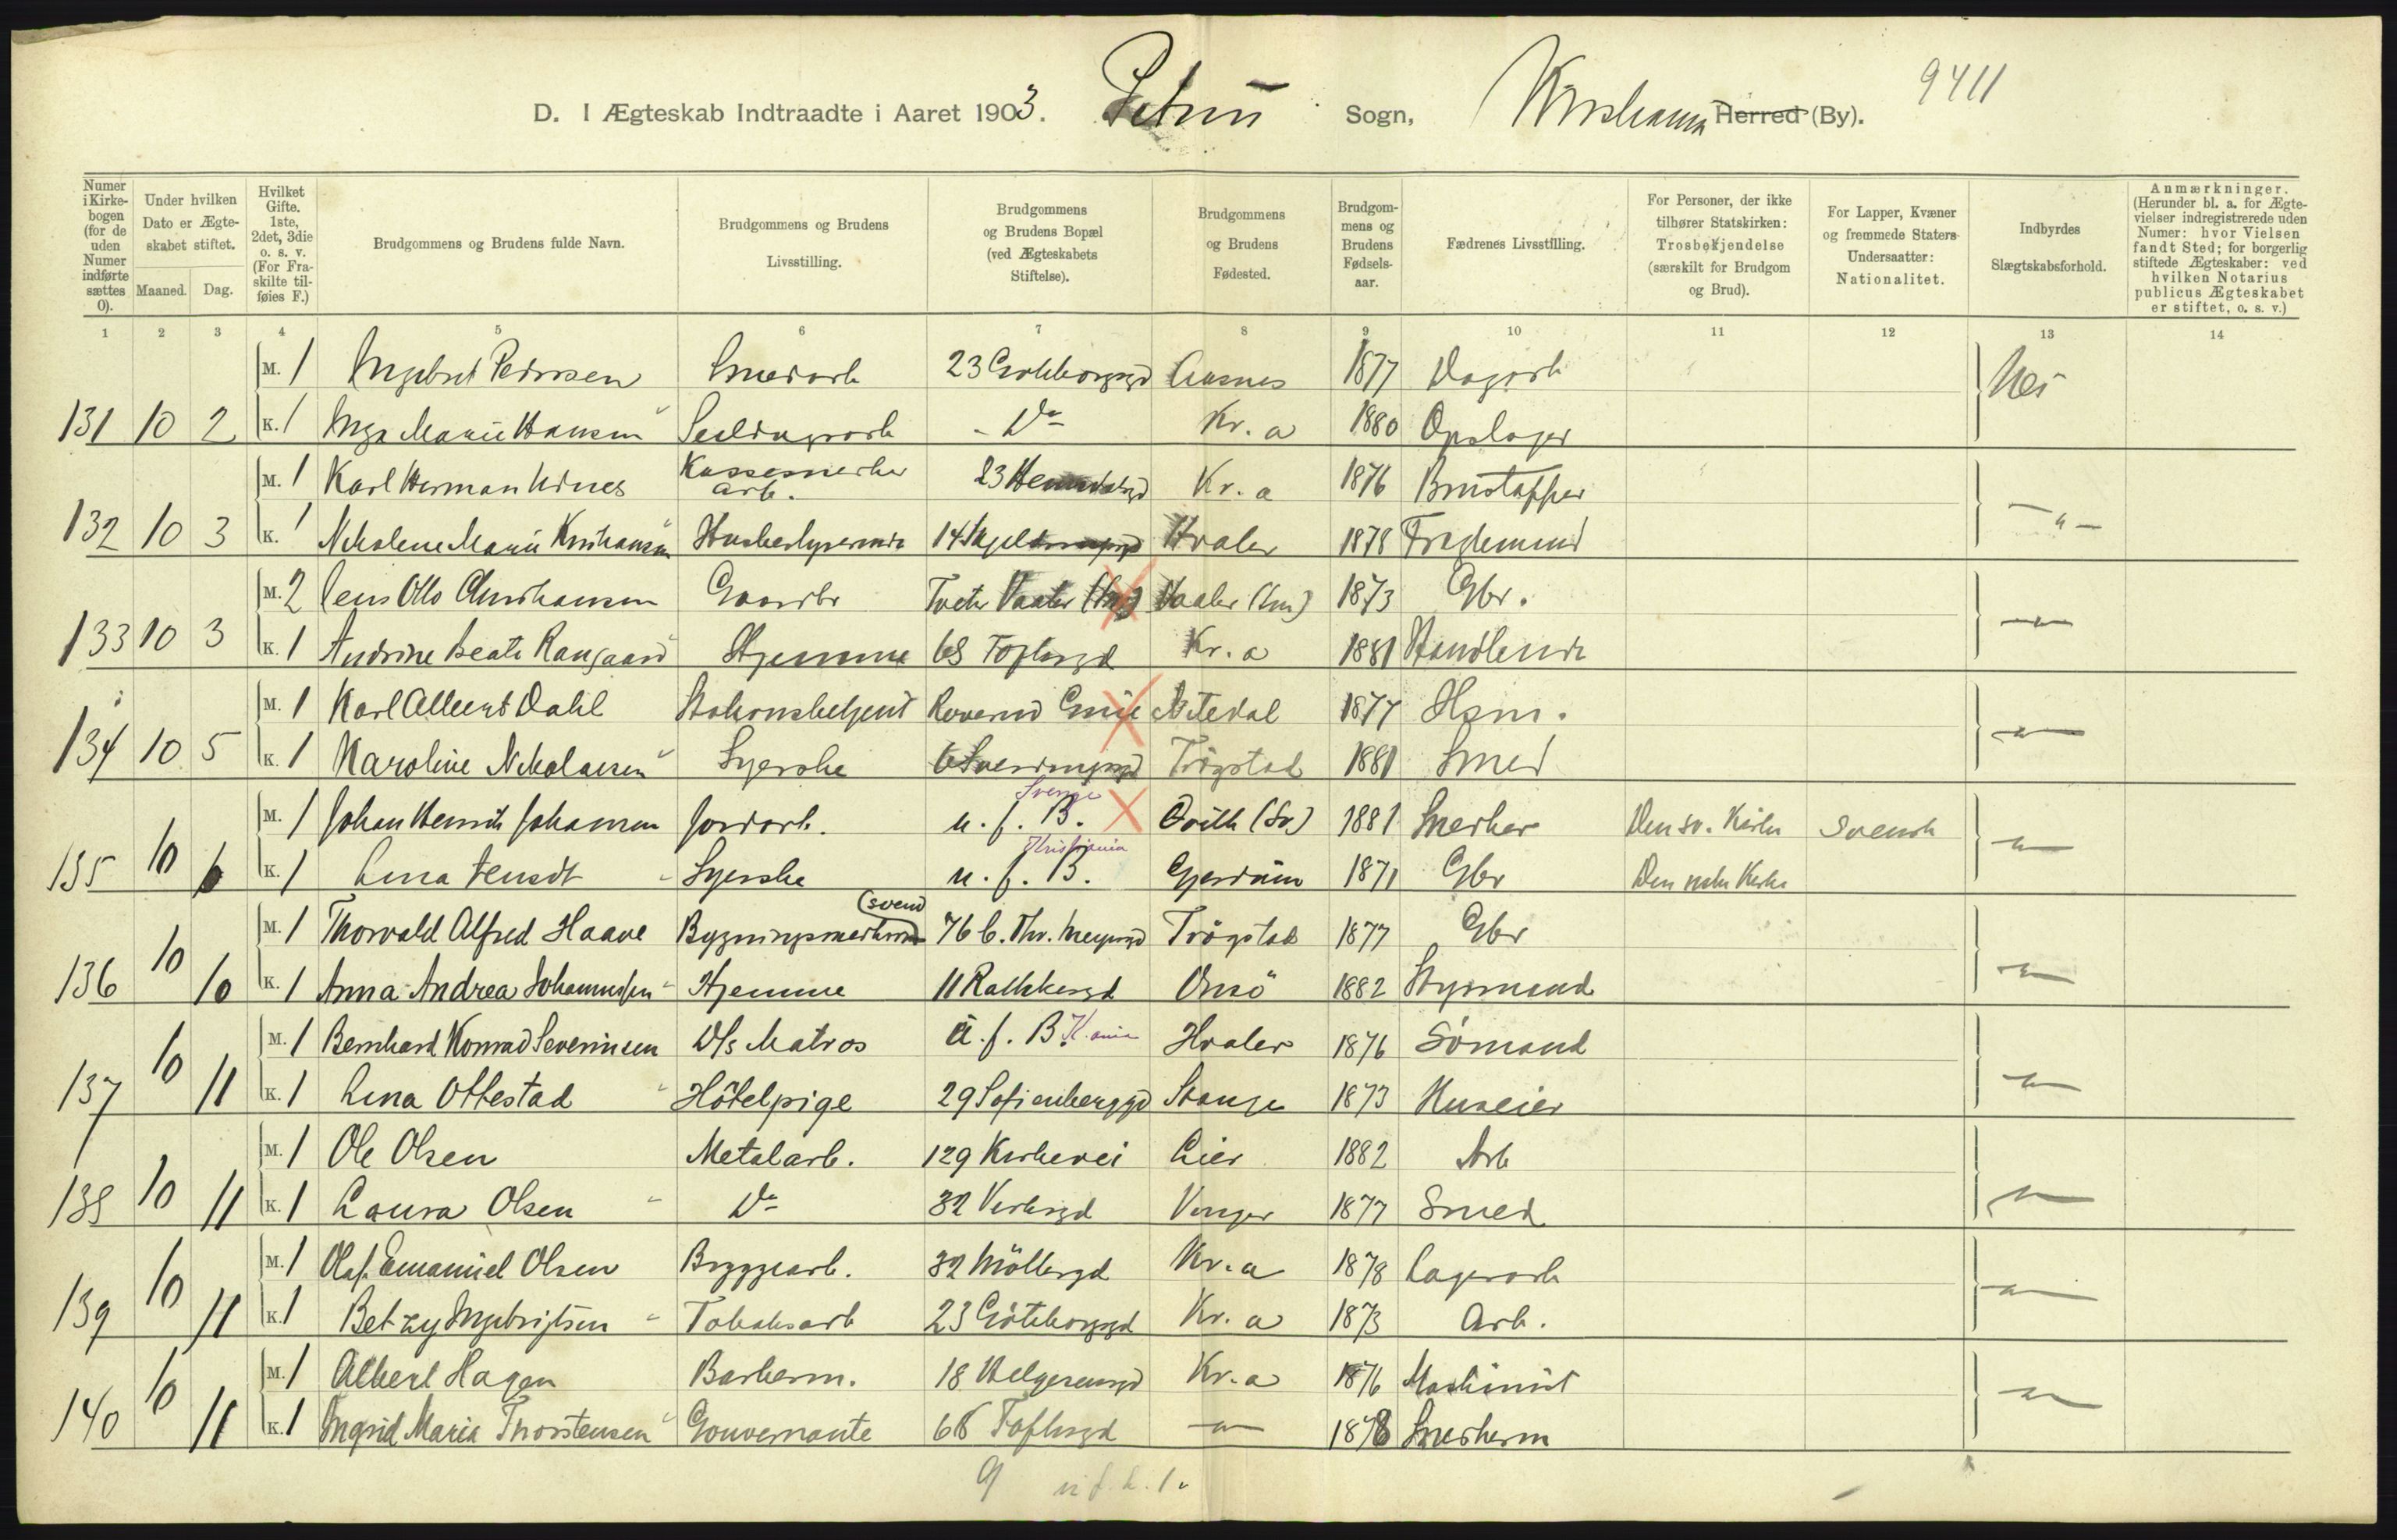 9411
D. I Ægteskab Indtraadte i Aaret 1903. Petrus Sogn, Kristiania Herred (By).
Numer i Kirkebogen (for de uden Numer indførte sættes 0). | Under hvilken Dato er Ægteskabet stiftet. Maaned. Dag. | Hvilket Gifte. 1ste, 2det, 3die o. s. v. (For Fraskilte tilføies F.) | Brudgommens og Brudens fulde Navn. | Brudgommens og Brudens Livsstilling. | Brudgommens og Brudens Bopæl (ved Ægteskabets Stiftelse). | Brudgommens og Brudens Fødested. | Brudgommens og Brudens Fødselsaar. | Fædrenes Livsstilling. | For Personer, der ikke tilhører Statskirken: Trosbekjendelse (særskilt for Brudgom og Brud). | For Lapper, Kvæner og fremmede Staters Undersaatter: Nationalitet. | Indbyrdes Slægtskabsforhold. | Anmærkninger. (Herunder bl. a. for Ægtevielser indregistrerede uden Numer: hvor Vielsen fandt Sted; for borgerlig stiftede Ægteskaber: ved hvilken Notarius publicus Ægteskabet er stiftet, o. s. v.)
1 2 3 4 5 6 7 8 9 10 11 12 13 14
M. 1 Ingebret Pedersen Smedarb 23 Gøteborggd Aasnes 1877 Dagarb Nei
131 10 2 K. 1 Inga Marie Hansen Seildugsarb - Do Kr.a 1880 Opslager
M. 1 Karl Herman Kassesnekker arb. 23 Kr.a 1876
132 10 3 K. 1 Nikoline Marie Kristiansen Husholderske 14 Hvaler 1878 -"-
M. 2 Jens Otto Christiansen Gaardbr Tveter Vaaler (Sm) Vaaler (Sm) 1873 Gbr.
133 10 3 K. 1 Andrine Beate Rangaard Hjemme 68 Toftesgd Kr.a 1881 Handlende -"-
M. 1 Karl Albert Dahl Stationsbetjent Nitedal 1877 Hsm.
134 10 5 K. 1 Karoline Nikolaisen Syerske 6 Sverdrupsgd Trøgstad 1881 Smed -"-
M. 1 Johan Henrik Johansen Jordarb. u. f. B. Sverige (Sv) 1881 Snekker Den sv. Kirke Svensk
135 10 6 K. 1 Lina Syerske u. f. B. Kristiania Gjerdrum 1871 Gbr Den norske Kirke -"-
M. 1 Thorvald Alfred Haave Bygningssnekker (svend 76 b. Thv. Meyersgd Trøgstad 1877 Gbr
136 10 10 K. 1 Anna Andrea Johannessen Hjemme 11 Rathkesgd Onsö 1882 Styrmand -"-
M. 1 Bernhard Konrad Severinsen D/s Matros u. f. B. K.ania Hvaler 1876 Sömand
137 10 11 K. 1 Lina Ottestad Hôtelpige 29 Sofienberggd Stange 1873 Huseier -"-
M. 1 Ole Olsen Metalarb. 129 Kirkevei Lier 1882 Arb
138 10 11 K. 1 Laura Olsen Do 32 Verksgd Vinger 1877 Smed -"-
M. 1 Olaf Emanuel Olsen Bryggearb. 32 Möllergd Kr.a 1878 Lagerarb
139 10 11 K. 1 Betzy Ingebrigtsen Tobaksarb 23 Göteborggd Kr.a 1873 Arb. -"-
M. 1 Albert Hagen Barberm. 18 Helgesensgd Kr.a 1876 Maskinist
140 10 11 K. 1 Ingrid Marie Thorstensen Gouvernante 68 Toftesgd -"- 1878 Snekkerm -"-
9 u.f.B. 1.